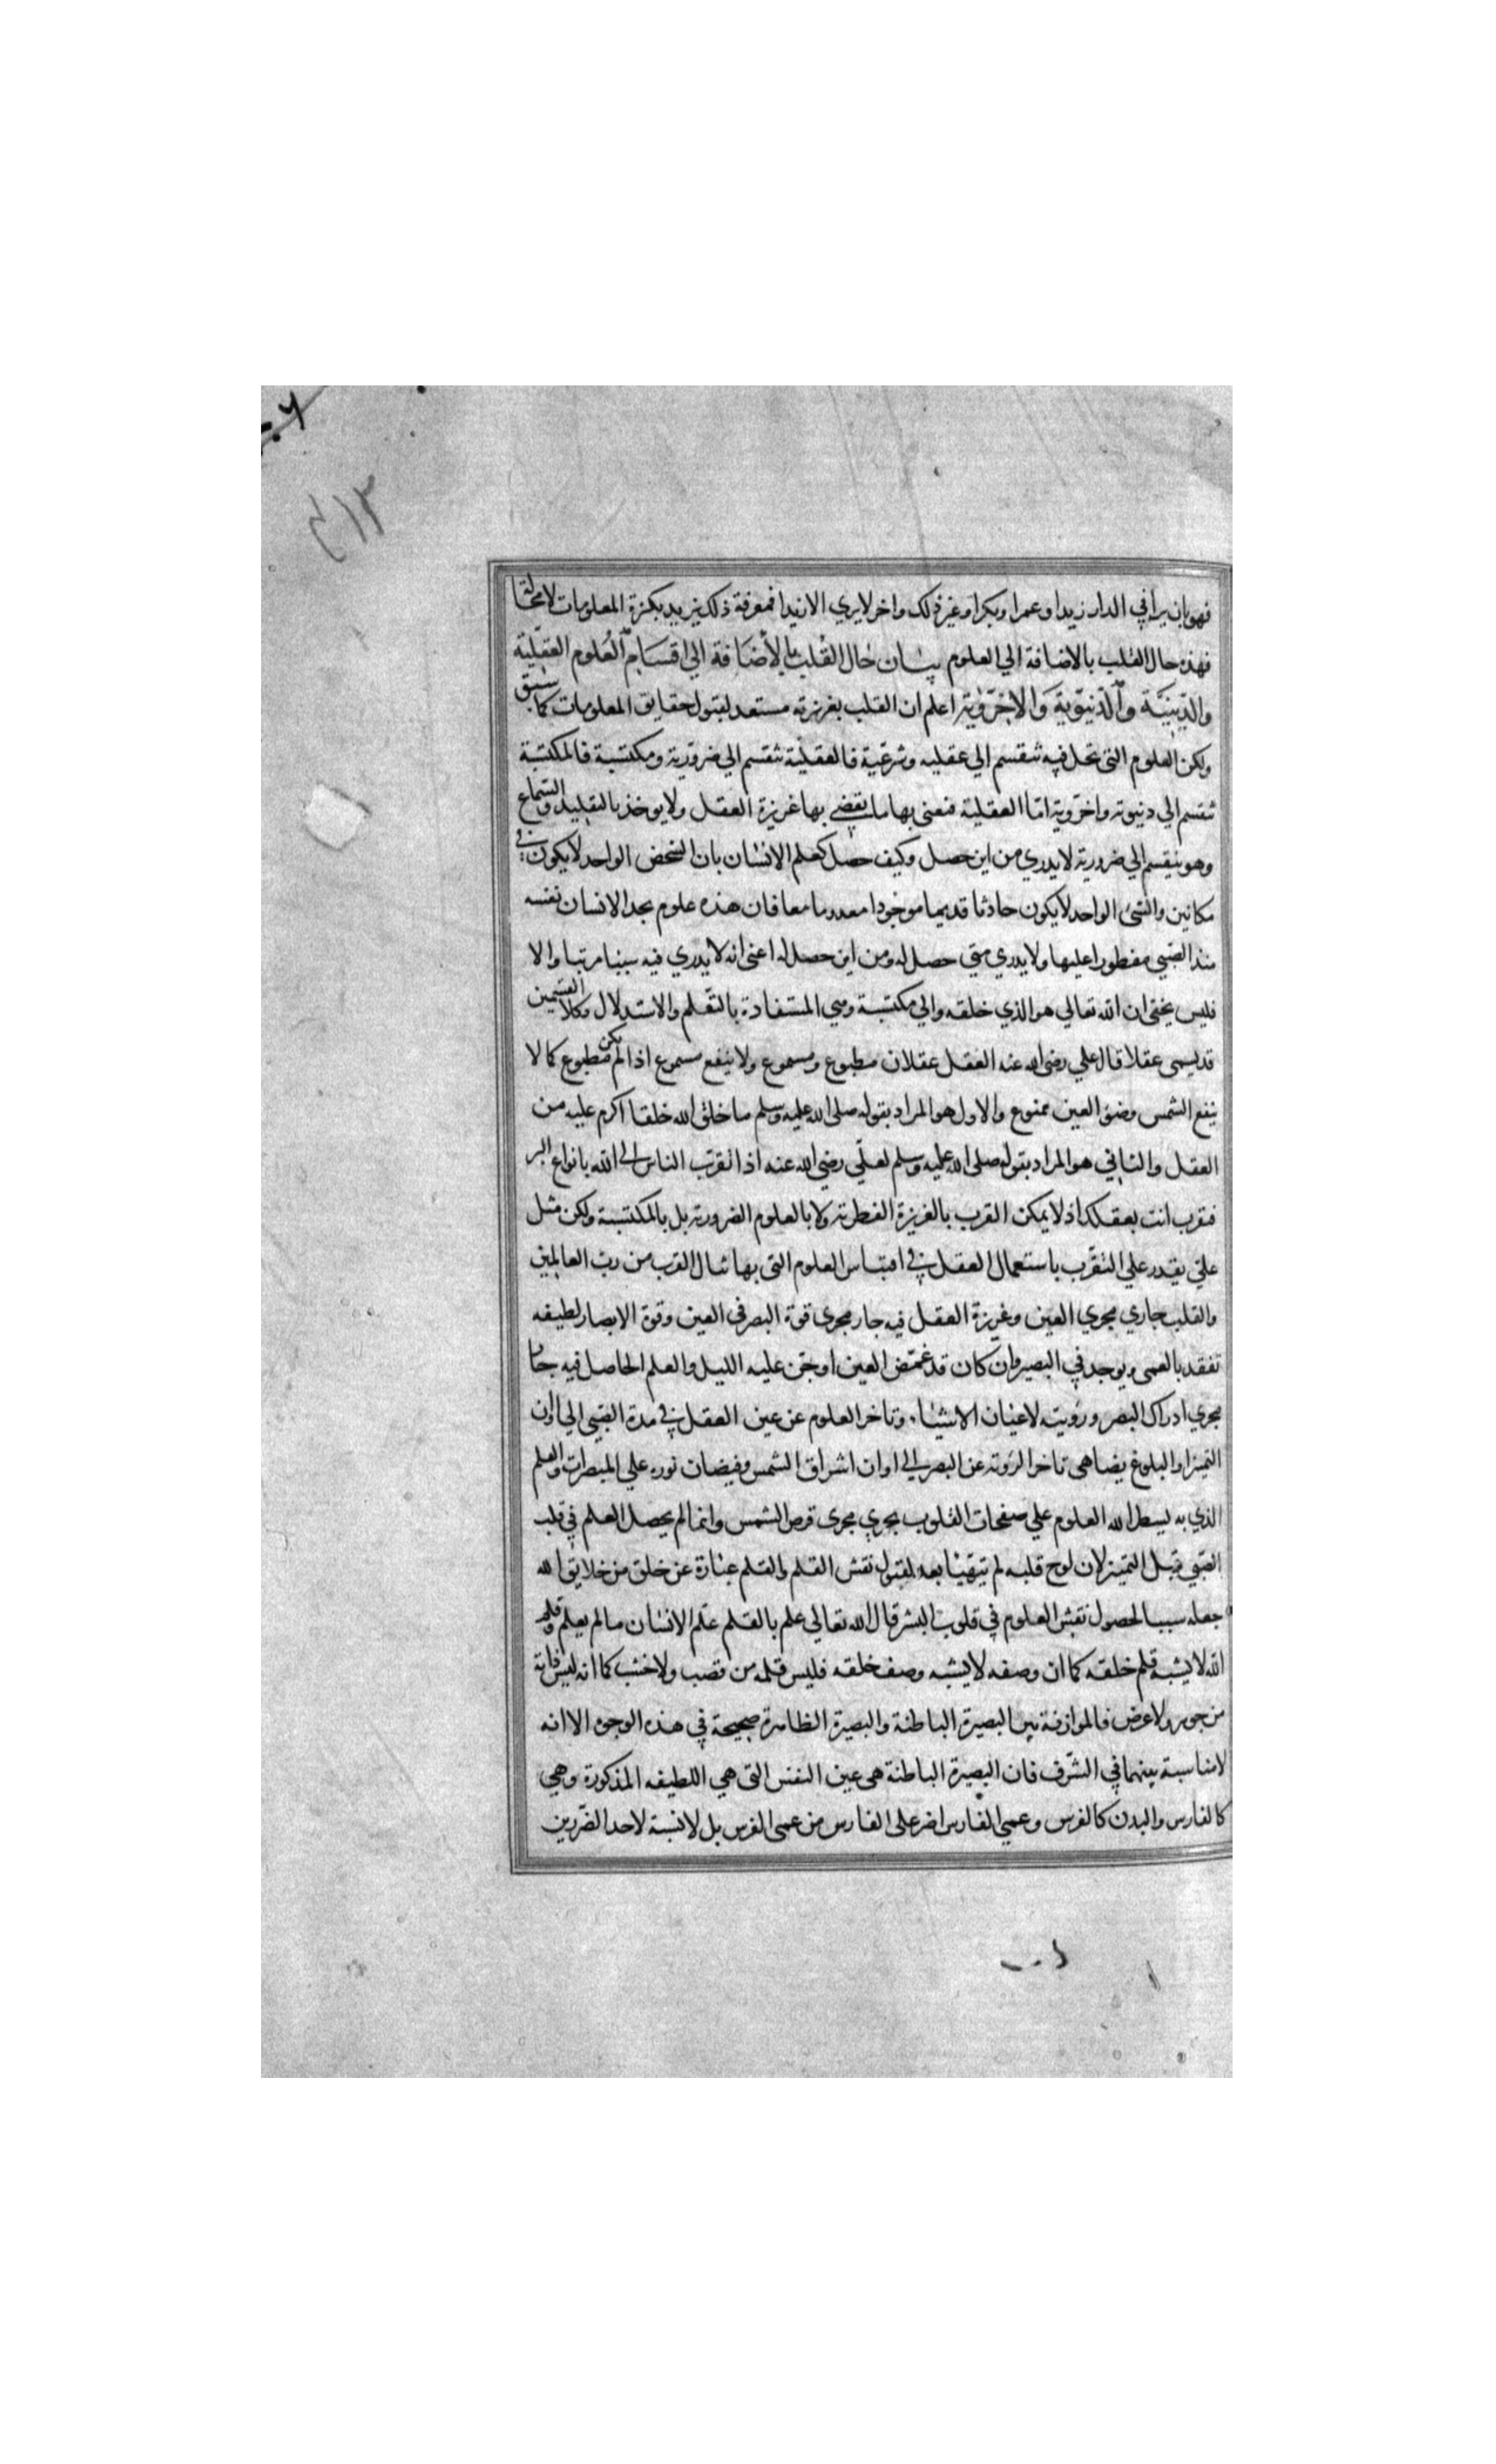 ٤١٣
فهو بان يرا في الدار زيدا وعمرا وبكرا وغير ذلك واخر لا يري الا زيدا فمعرفة ذلك يزيد بكثرة المعلومات لا محالة
فهذه حال القلب بالاضافة الي العلوم بيان حال القلب بالاضافة الي اقسام العلوم العقلية
والدينية والدنيوية والاخروية اعلم ان القلب بغريزته مستعد لقبول حقايق المعلومات كما سبق
ولكن العلوم التي تحل فيه تنقسم الي عقليه وشرعية فالعقلية تنقسم الي ضرورية ومكتسبة فالمكتسبة
تنقسم الي دنيوية واخروية اما العقلية فنعني بها ما يقضي بها غريزة العقل ولا يوخذ بالتقليد والسماع
وهو ينقسم الي ضرورية لا يدري من اين حصل وكيف حصل كعلم الانسان بان الشخص الواحد لا يكون في
مكانين والشئ الواحد لا يكون حادثا قديما موجودا معدوما معا فان هذه علوم يجد الانسان نفسه
منذ الصبي مفطورا عليها ولا يدري متي حصل له ومن اين حصل له اعني انه لا يدري فيه سببا مرتبا والا
فليس يخفى ان الله تعالي هو الذي خلقه والي مكتسبة وهي المستفادة بالتعلم والاستدلال وكلا القسمين
قد يسمى عقلا قال علي رضى الله عنه العقل عقلان مطبوع ومسموع ولا ينفع مسموع اذا لم يكن مطبوع كما لا
ينفع الشمس وضوء العين ممنوع والاول هو المراد بقوله صلى الله عليه وسلم ما خلق الله خلقا اكرم عليه من
العقل والثاني هو المراد بقوله صلى الله عليه وسلم لعلي رضي الله عنه اذا تقرب الناس الى الله بانواع البر
فتقرب انت بعقلك اذ لا يمكن القرب بالغريزة الفطرية ولا بالعلوم الضرورية بل بالمكتسبة ولكن مثل
علي يقدر علي التقرب باستعمال العقل في اقتباس العلوم التي بها تنال القرب من رب العالمين
والقلب جاري مجري العين وغريزة العقل فيه جار مجرى قوة البصر في العين وقوة الابصار لطيفه
تفقد بالعمى ويوجد في البصير وان كان قد غمض العين او جن عليه الليل والعلم الحاصل فيه جار
مجري ادراك البصر ورويته لاعيان الاشياء وتاخر العلوم عن عين العقل في مدة الصبي الي اوان
التميز او البلوغ يضاهي تاخر الروية عن البصر الى اوان اشراق الشمس وفيضان نوره علي المبصرات والعلم
الذي به يسطر الله العلوم علي صفحات القلوب يجري مجرى قرص الشمس وانما لم يحصل العلم في قلب
الصبي قبل التميز لان لوح قلبه لم يتهيا بعد لقبول نقش القلم والقلم عبارة عن خلق من خلايق الله
جعله سببا لحصول نقش العلوم في قلوب البشر قال الله تعالي علم بالقلم علم الانسان ما لم يعلم وقلم
الله لا يشبه قلم خلقه كما ان وصفه لا يشبه وصف خلقه فليس قلمه من قصب ولا خشب كما انه ليس ذاته
من جوهر ولا عرض فالموازنة بين البصيرة الباطنة والبصيرة الظاهرة صحيحة في هذه الوجوه الا انه
لا مناسبة بينهما في الشرف فان البصيرة الباطنة هي عين النفس التي هي اللطيفه المذكورة وهي
كالفارس والبدن كالفرس وعمي الفارس اضر على الفارس من عمى الفرس بل لا نسبة لاحد الضررين